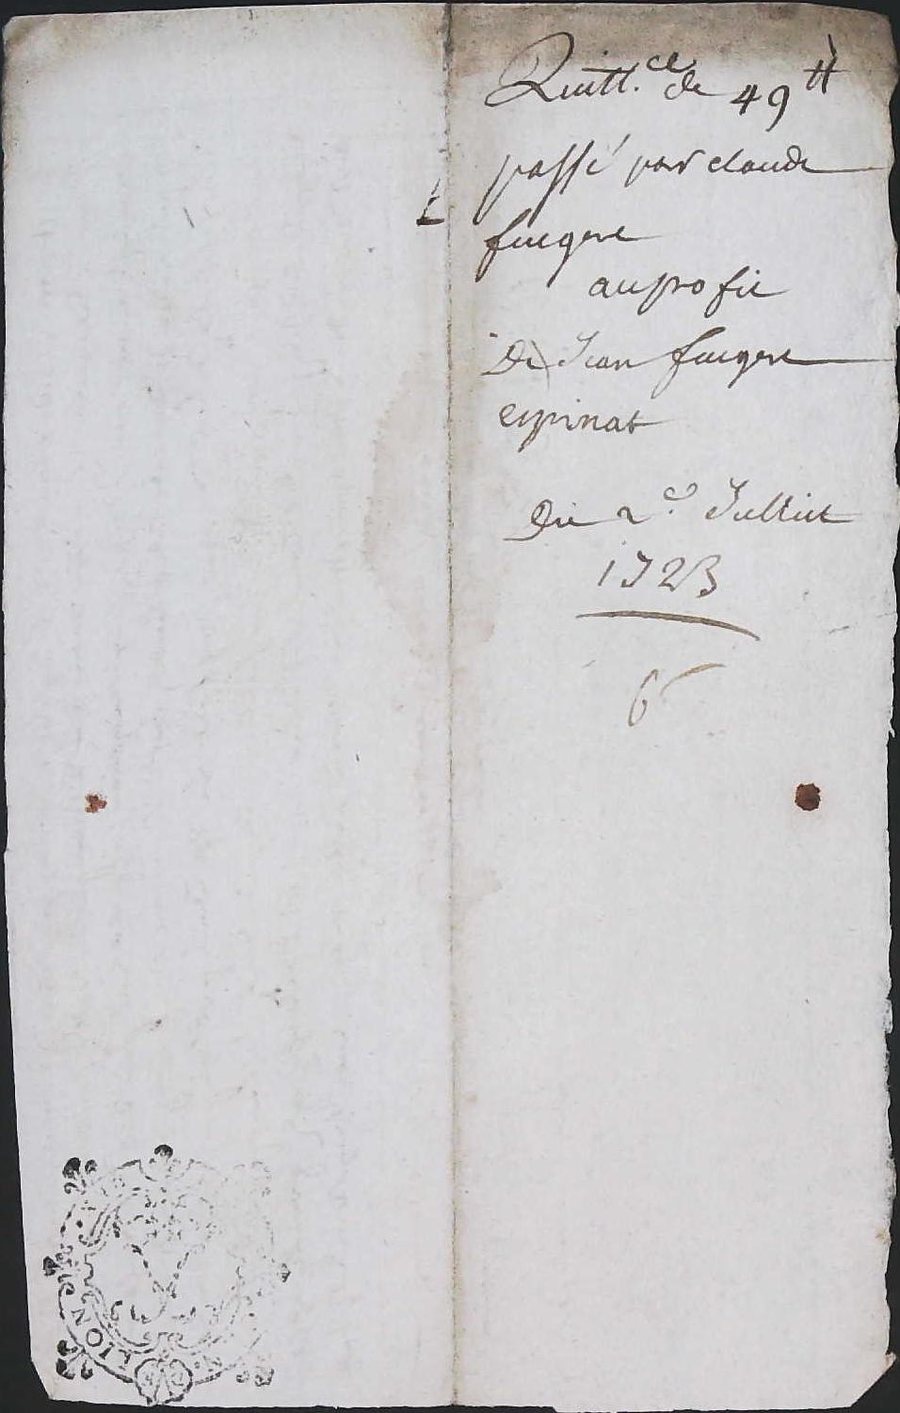 Quitt.ce de 49 ₶
passé par claude
fuegere
au profit
De Jean fuegere
espinat
Du 2e. Julliet
1723
6
LION